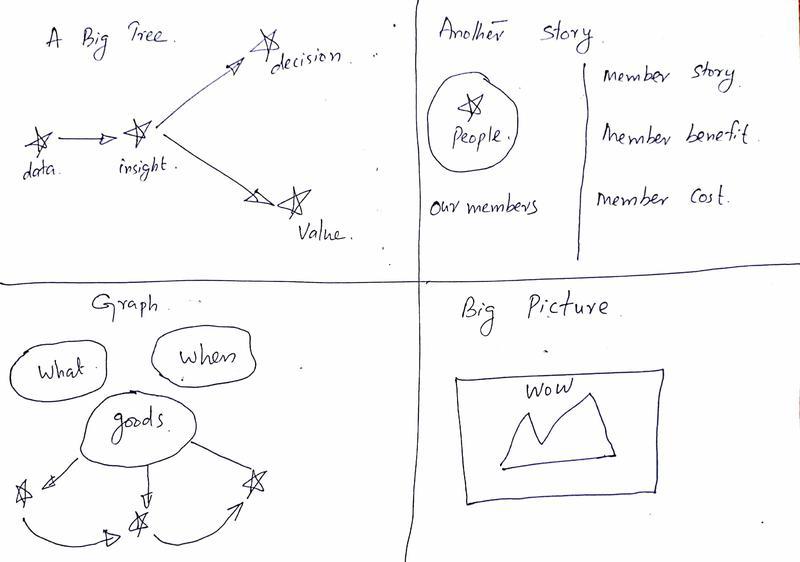 A Big Tree.
decision.
data.
insight.
Value.
Another Story.
People.
our members
Member Story.
Member benefit.
Member Cost.
Graph.
What
when
goods.
Big Picture
WOW